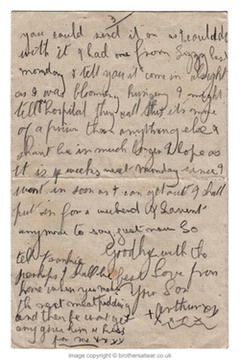 3
you could send it on would do
with it I had one from Suzy last
monday I tell you it come in alright
as I was blooming hungry I might
tell hospital they call this its more
of a prison than anything else I
shant be in much longer I hope as
it is weeks next monday since I
went in soon as I can get out I shall
put in for a weekend I havent
anymore to say just now So
tell Frankie Goodby with the
perhaps I shall be Best Love from
home when you have Your Son
the next meat pudding Arthur
and then he wont get
any give him a kiss
for me xxx
image copyright © www.brothersatwar.co.uk